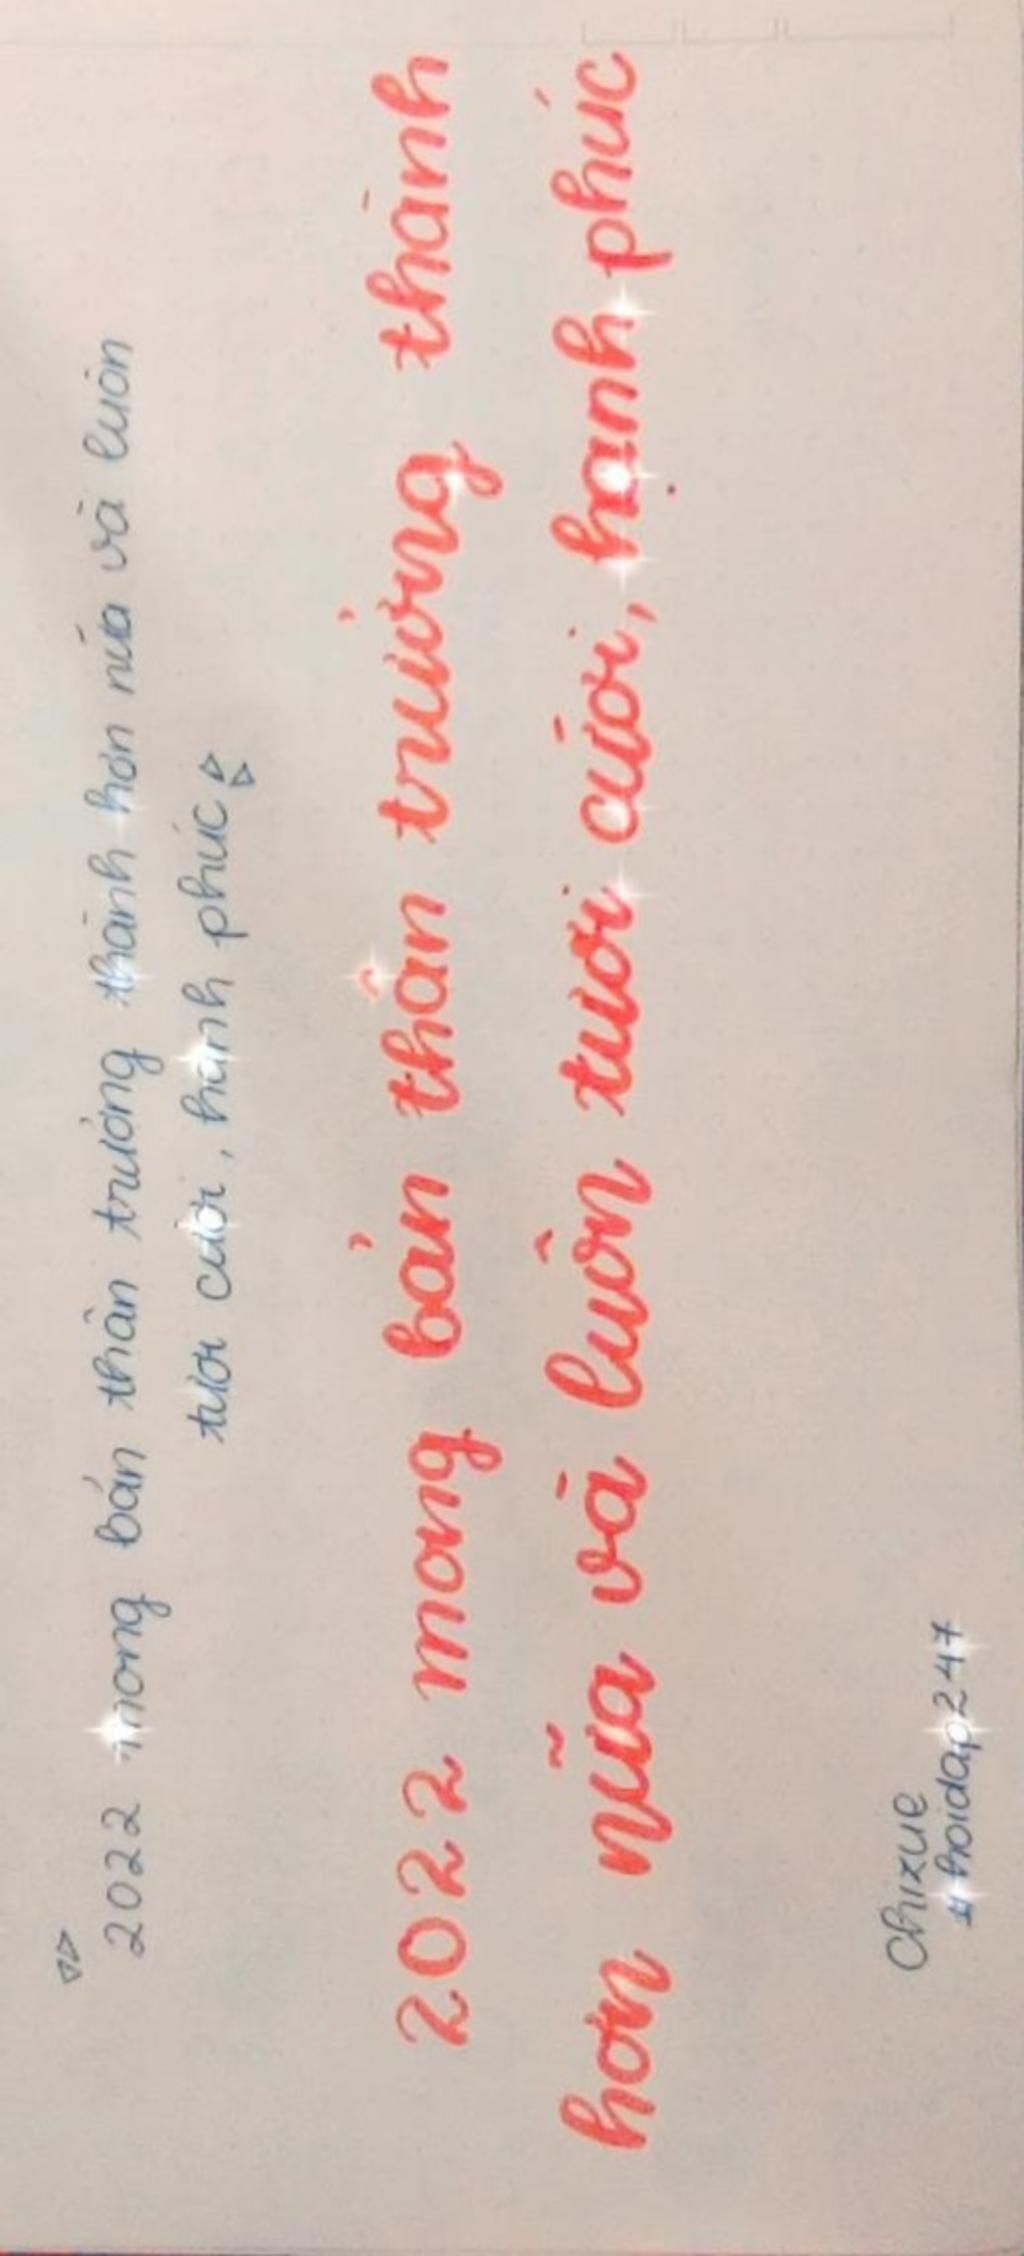 2022 mong bản thân trưởng thành hơn nữa và luôn
tươi cười, hạnh phúc
2022 mong bản thân trưởng thành
hơn nữa và luôn tươi cười, hạnh phúc
Chixue
#hoidap247